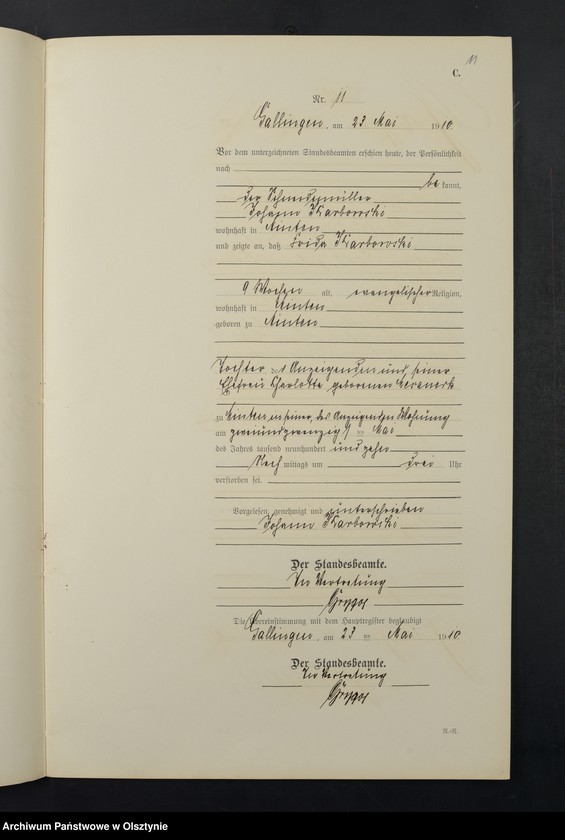 11
C.
Nr. 11
Gallingen, am 23. Mai 1910.
Vor dem unterzeichneten Standesbeamten erschien heute, der Persönlichkeit
nach
be kannt,
der Schneidemüller
Johann Karbowski
wohnhaft in
und zeigte an, daß Frida Karbowski
9 Wochen alt, evangelischer Religion,
wohnhaft in
geboren zu
Tochter des Anzeigenden und seiner
Ehefrau Charlotte geborenen
zu in seiner, des Anzeigenden Wohnung
am zweiundzwanzigsten Mai
des Jahres tausend neunhundert und zehn
Nach mittags um drei Uhr
verstorben sei.
Vorgelesen, genehmigt und unterschrieben
Johann Karbowski
Der Standesbeamte.
In Vertretung
Die Übereinstimmung mit dem Hauptregister beglaubigt
Gallingen, am 23 ten Mai 1910
Der Standesbeamte.
In Vertretung
Archiwum Państwowe w Olsztynie